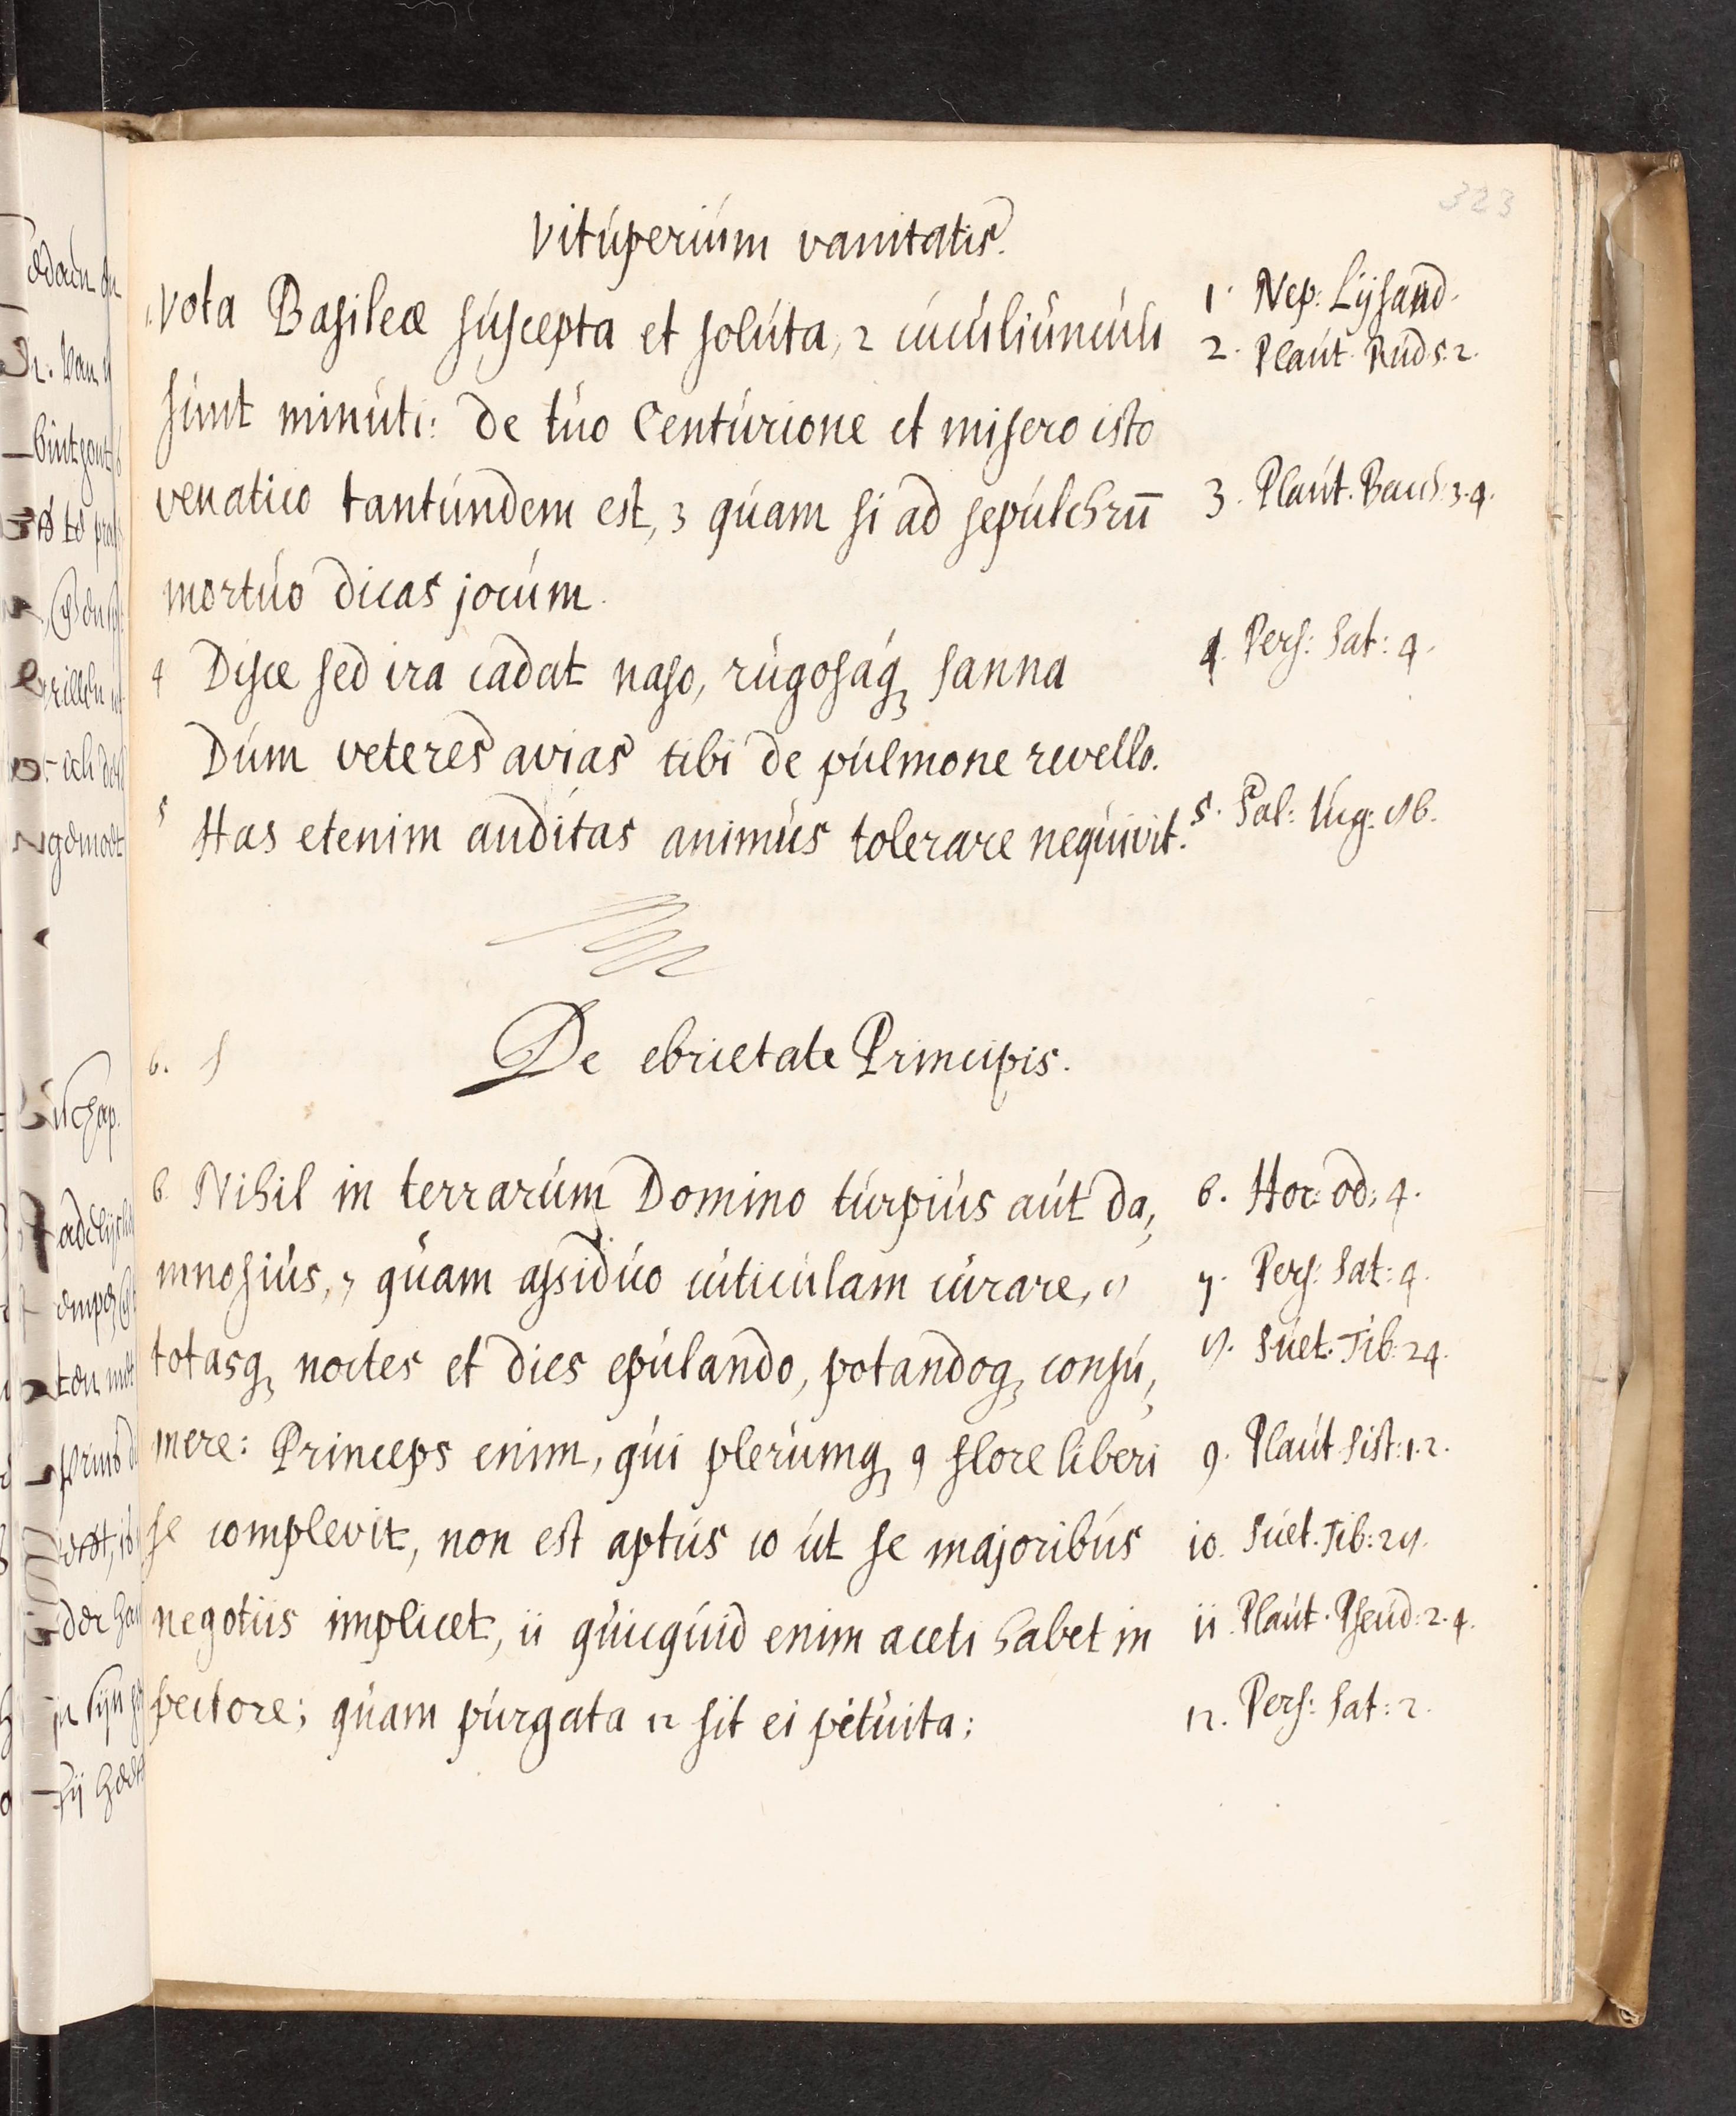 323
Vituperium vanitatis.
1. Vota Basileæ suscepta et soluta, 2 cuculiunculi
sunt minuti: De tuo Centurione et misero isto
venatico tantundem est, 3 quam si ad sepulchrū
mortuo dicas jocum.
4 Disce sed ira cadat naso, rugosaq, sanna
Dum veteres avias tibi de pulmone revello.
5 Has etenim auditas animus tolerare nequivit.
1. Nep: Lysand.
2. Plaut. Rud 5. 2.
3. Plaut. Bacch. 3. 4.
4. Pers: Sat: 4.
5. Sal: Iug.
6. De ebrietate Principis.
6. Nihil in terrarum Domino turpius aut da,
mnosius, 7 quam assiduo cuticulam curare, 8
totasq, noctes et dies epulando, potandoq, consu,
mere: Princeps enim, qui plerumq, 9 flore liberi
se complevit, non est aptus 10 ut se majoribus
negotiis implicet, 11 quicquid enim aceti habet in
pectore; quam purgata 12 sit ei petuita:
6. Hor: od: 4.
7. Pers: Sat: 4.
8. Suet. Tib: 24.
9. Plaut. Sist: 1. 2.
10. Suet. Tib: 28.
11. Plaut. Pseud: 2. 4.
12. Pers: Sat: 2.